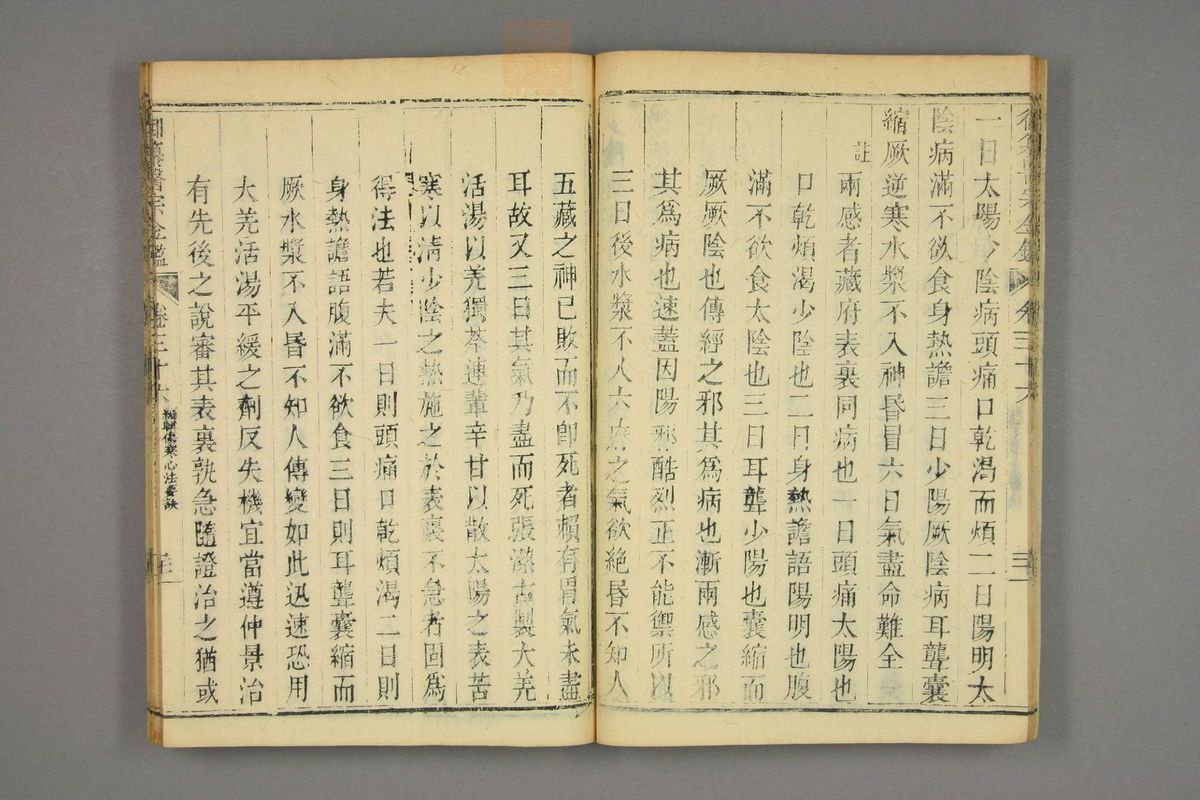 一日太陽少陰病頭痛口乾渴而煩二日陽明太
陰病滿不欲食身熱譫三日少陽厥陰病耳聾囊
縮厥逆寒水漿不入神昏冒六日氣盡命難全
註
兩感者藏府表裏同病也一日頭痛太陽也
口乾煩渴少陰也二日身熱譫語陽明也腹
滿不欲食太陰也三日耳聾少陽也囊縮而
厥厥陰也傳經之邪其為病也漸兩感之邪
其為病也速蓋因陽邪酷烈正不能禦所以
三日後水漿不入六府之氣欲絕昏不知人
五藏之神已敗而不卽死者賴有胃氣未盡
耳故又三日其氣乃盡而死張潔古製大羌
活湯以羌獨芩連輩辛甘以散太陽之表苦
寒以清少陰之熱施之於表裏不急者固為
得法也若夫一日則頭痛口乾煩渴二日則
身熱譫語腹滿不欲食三日則耳聾囊縮而
厥水漿不入昏不知人傳變如此迅速恐用
大羌活湯平緩之劑反失機宜當遵仲景治
有先後之說審其表裏孰急隨證治之猶或
御纂醫宗金鑑
卷三十六
編輯傷寒心法要訣